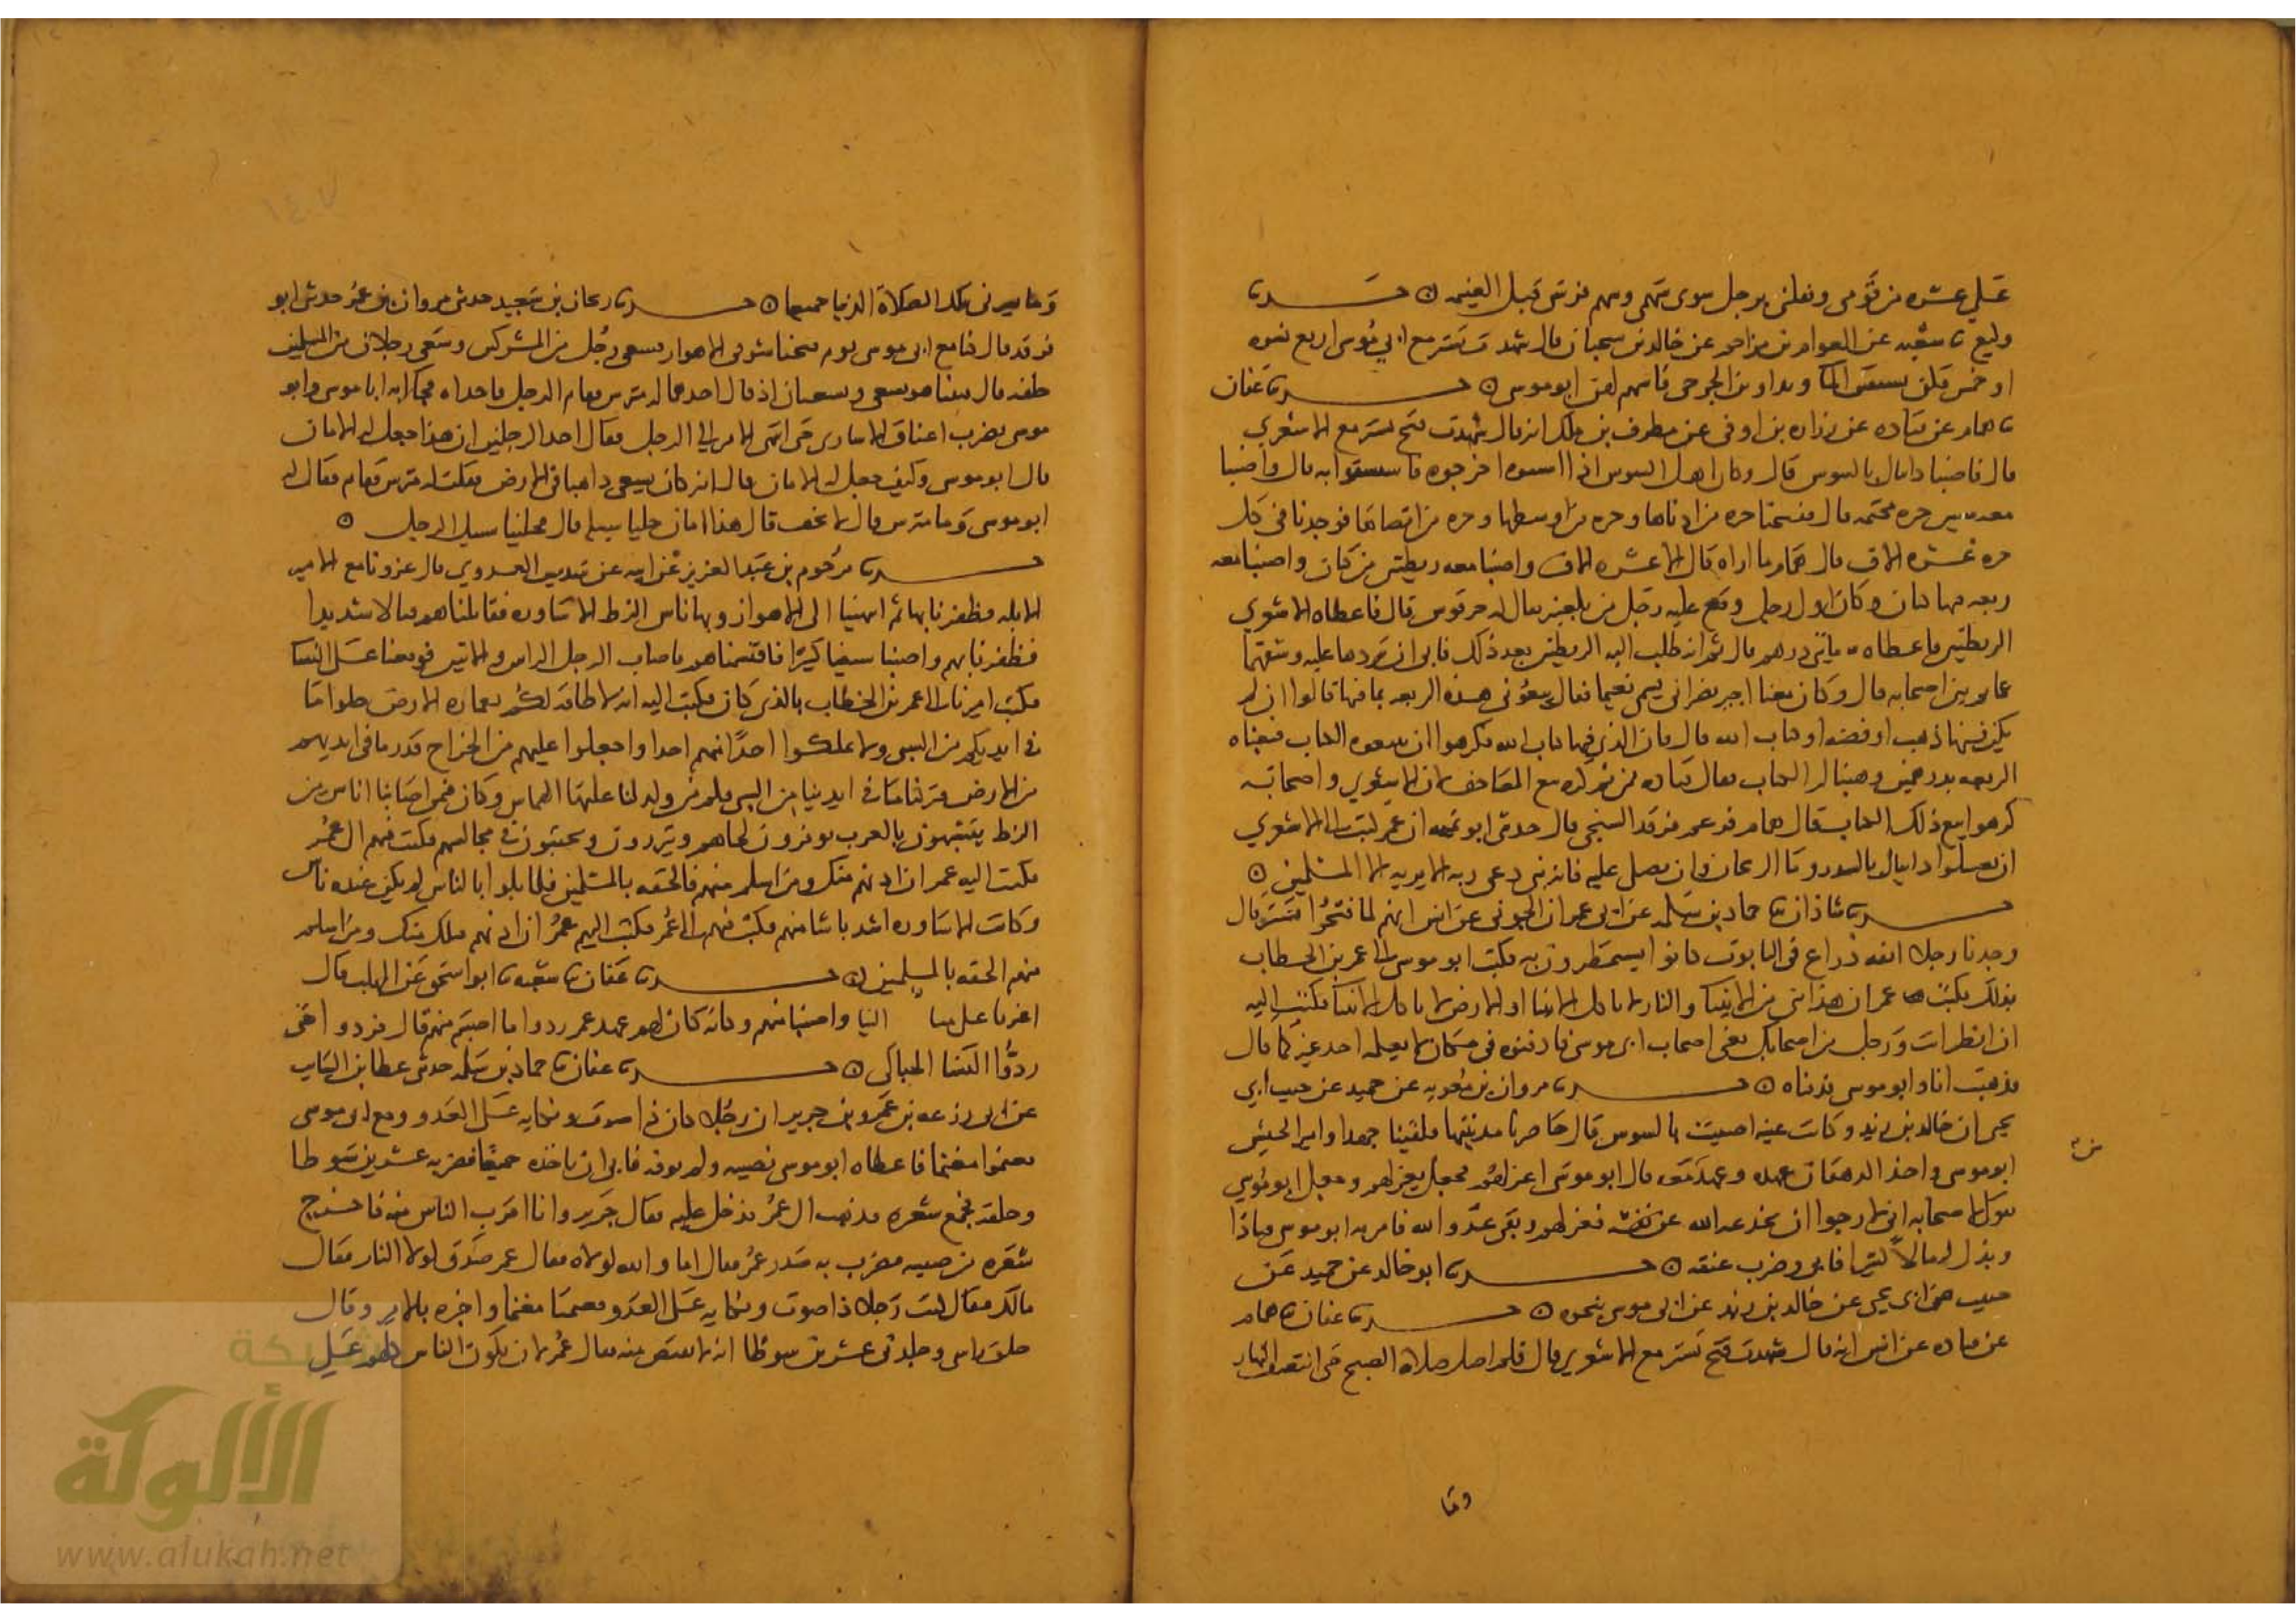 على عشره من قومي ونفلني برجل سوى سهمي وسهم فرسي قبل الغنيمه ه حدثنا
وكيع ثنا شعبه عن العوام بن مزاحم عن خالد بن سيحان قال شهدت تستر مع ابي موسى اربع نسوه
او خمس فكن يستقين الماء ويداوين الجرحى فاسهم لهن ابو موسى ه حدثنا عفان
ثنا همام عن قتاده عن زراره بن اوفى عن مطرف بن ملك انه قال شهدت فتح تستر مع الاشعري
قال فاصبنا دانيال بالسوس قال وكان اهل السوس اذا اسنتوا اخرجوه فاستسقوا به قال واصبنا
معه ستين جره مختمه قال ففتحنا جره من ادناها وجره من اوسطها وجره من اقصاها فوجدنا في كل
جره عشره الاف قال همام ما اراه قال الا عشره الاف واصبنا معه ريطتين من كتان واصبنا معه
ربعه فيها كتاب وكان اول رجل وقع عليه رجل من بلعنبر يقال له حرقوس قال فاعطاه الاشعري
الريطتين واعطاه مايتي درهم قال ثم انه طلب اليه الريطتين بعد ذلك فابى ان يردها عليه وشقهما
عمايم بين اصحابه قال وكان معنا اجير نصراني يسمى نعيما فقال بيعوني هذه الربعه بما فيها قالوا ان لم
يكن فيها ذهب او فضه او كتاب الله قال فان الذي فيها كتاب الله فكرهوا ان يبيعوه الكتاب فبعناه
الربعه بدرهمين وهبنا له الكتاب فقال قتاده فمن ثم كره بيع المصاحف لان الاشعري واصحابه
كرهوا بيع ذلك الكتاب قال همام فزعم فرقد السبخي قال حدثني ابو تميمه ان عمر كتب الى الاشعري
ان تغسلوا دانيال بالسدر وما الريحان وان يصلى عليه فانه نبي دعى ربه الا يريه الا المسلمين ه
حدثنا شاذان ثنا حماد بن سلمه عن ابي عمران الجوني عن انس انهم لما فتحوا تستر قال
وجدنا رجلا انفه ذراع في التابوت كانوا يستمطرون به فكتب ابو موسى الى عمر بن الخطاب
بذلك فكتب عمر ان هذا نبي من الانبيا والنار لا تاكل الانبيا او الارض لا تاكل الانبيا فكتب اليه
ان انظر انت ورجل من اصحابك يعني اصحاب ابي موسى فادفنوه في مكان لا يعلمه احد غيركما قال
فذهبت انا وابو موسى فدفناه ه حدثنا مروان بن معويه عن حميد عن حبيب ابي
يحيى ان خالد بن زيد وكانت عينه اصيبت بالسوس قال حاصرنا مدينتها فلقينا جهدا وامير الجيش
ابو موسى واخذ الدهقان عهده وعهد من معه قال ابو موسى اعزلهم فجعل يعزلهم وجعل ابو موسى
يقول لاصحابه اني لارجوا ان يخدعه الله عن نفسه فعزلهم وبقي عدو الله فامر به ابو موسى فنادا
وبذل له مالا كثيرا فابى وضرب عنقه ه حدثنا ابو خالد عن حميد عن
حبيب ابي يحيى عن خالد بن زيد عن ابي موسى بنحوه ه حدثنا عفان ثنا همام
عن قتاده عن انس انه قال شهدت فتح تستر مع الاشعري قال فلم اصل صلاة الصبح حتى انتصف النهار
وما
وما يسرني بتلك الصلاة الدنيا جميعا ه حدثنا ريحان بن سعيد حدثني مروان بن عمر حدثني ابو
فرقد قال كنا مع ابي موسى يوم فتحنا سوق الاهواز فسعى رجل من المشركين وسعى رجلان من المسلمين
خلفه قال فبينا هو يسعى ويسعيان اذ قال احدهما له مترس فقام الرجل فاخذاه فجاا به ابا موسى وابو
موسى يضرب اعناق الاسارى حتى انتهى الامر الى الرجل فقال احد الرجلين ان هذا جعل له الامان
قال ابو موسى وكيف جعل له الامان قال انه كان يسعى ذاهبا في الارض فقلت له مترس فقام فقال له
ابو موسى وما مترس قال لا تخف قال هذا امان خليا سبيله قال فخلينا سبيل الرجل ه
حدثنا مرحوم بن عبد العزيز عن ابيه عن سديس العدوي قال غزونا مع الامير
الابله فظفرنا بها ثم انتهينا الى الاهواز وبها ناس الزط الاساوره فقاتلناهم قتالا شديدا
فظفرنا بهم واصبنا سبيا كثيرا فاقتسمناهم فاصاب الرجل الراس والاثنين فوقعنا على النسا
فكتب اميرنا الى عمر بن الخطاب بالذي كان فكتب اليه انه لا طاقه لكم بعماره الارض خلوا ما
في ايديكم من السبي ولا تملكوا احدا منهم احدا واجعلوا عليهم من الخراج قدر ما في ايديهم
من الارض فتركنا ما في ايدينا من السبي فلم من ولد لنا عليه الهماس وكان فيمن اصابنا اناس من
الزط يتشبهون بالعرب يوفرون لحاهم وياتزرون ويحتبون في مجالسهم فكتب فيهم الى عمر
فكتب اليه عمر ان ادنهم منك ومن اسلم منهم فالحقه بالمسلمين فلما بلوا بالناس لم يكن عندهم ناس
وكانت الاساوره اشد باسا منهم فكتب فيهم الى عمر فكتب اليهم عمر ان ادنهم منك ومن اسلم
منهم الحقه بالمسلمين ه حدثنا عفان ثنا شعبه ثنا ابو اسحق عن المهلب قال
اغرنا على النيا واصبنا منهم وكانه كان لهم عهد عمر ردوا ما اصبتم منهم قال فردوا حتى
ردوا النسا الحبالى ه حدثنا عفان ثنا حماد بن سلمه حدثني عطا بن السايب
عن ابي زرعه بن عمرو بن جرير ان رجلا كان ذا صوت ونكايه على العدو ومع ابي موسى
فغنموا مغنما فاعطاه ابو موسى نصيبه ولم يوفه فابى ان ياخذه جميعا فضربه عشرين سوطا
وحلقه فجمع شعره فذهب الى عمر فدخل عليه فقال جرير وانا اقرب الناس منه فاخرج
شعره من ضبنه فضرب به صدر عمر فقال اما والله لولاه فقال عمر صدق لولا النار فقال
مالك فقال كنت رجلا ذا صوت ونكايه على العدو فغنمنا مغنما واخبره بالامر وقال
حلق راسي وجلدني عشرين سوطا انه لا يقتص منه فقال عمر لان يكون الناس كلهم على
شبكة
الألوكة
www.alukah.net